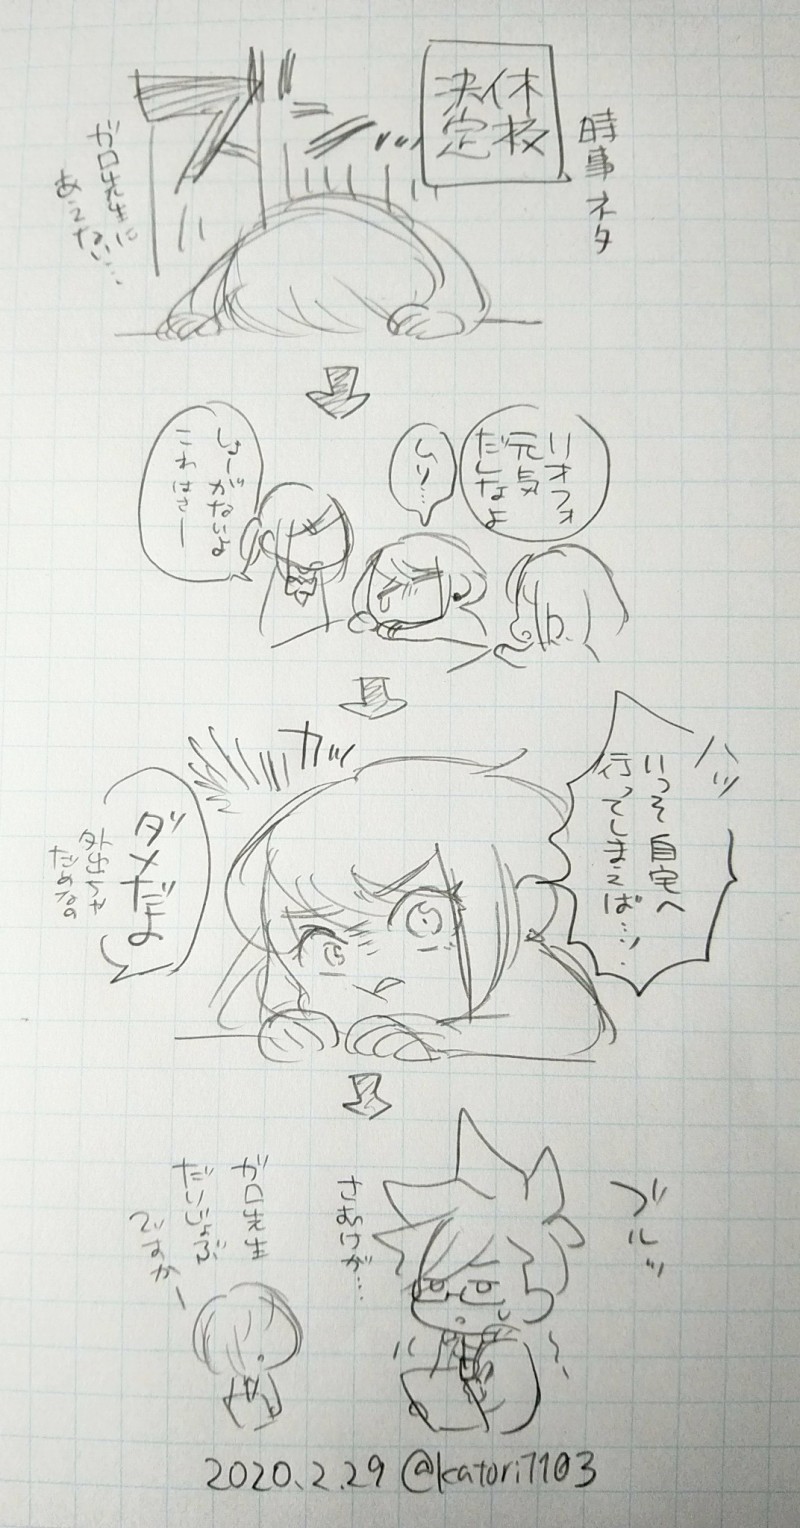 時事ネタ
休校
決定
ズーン…
ガロ先生に
あえない…
リオフォ
元気
だしなよ
ムリ…
しょーがないよ
こればさー
ハッ
いっそ自宅へ
行ってしまえば…ッ…
カッ
ダメだよ
外出ちゃ
だめなの
ブルッ
さむけが…
ガロ先生
だいじょぶ
ですかー
2020.2.29 @katori7103